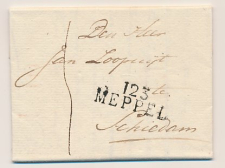 Den Heer
Jan Loopuijt
te
123
MEPPEL
Schiedam